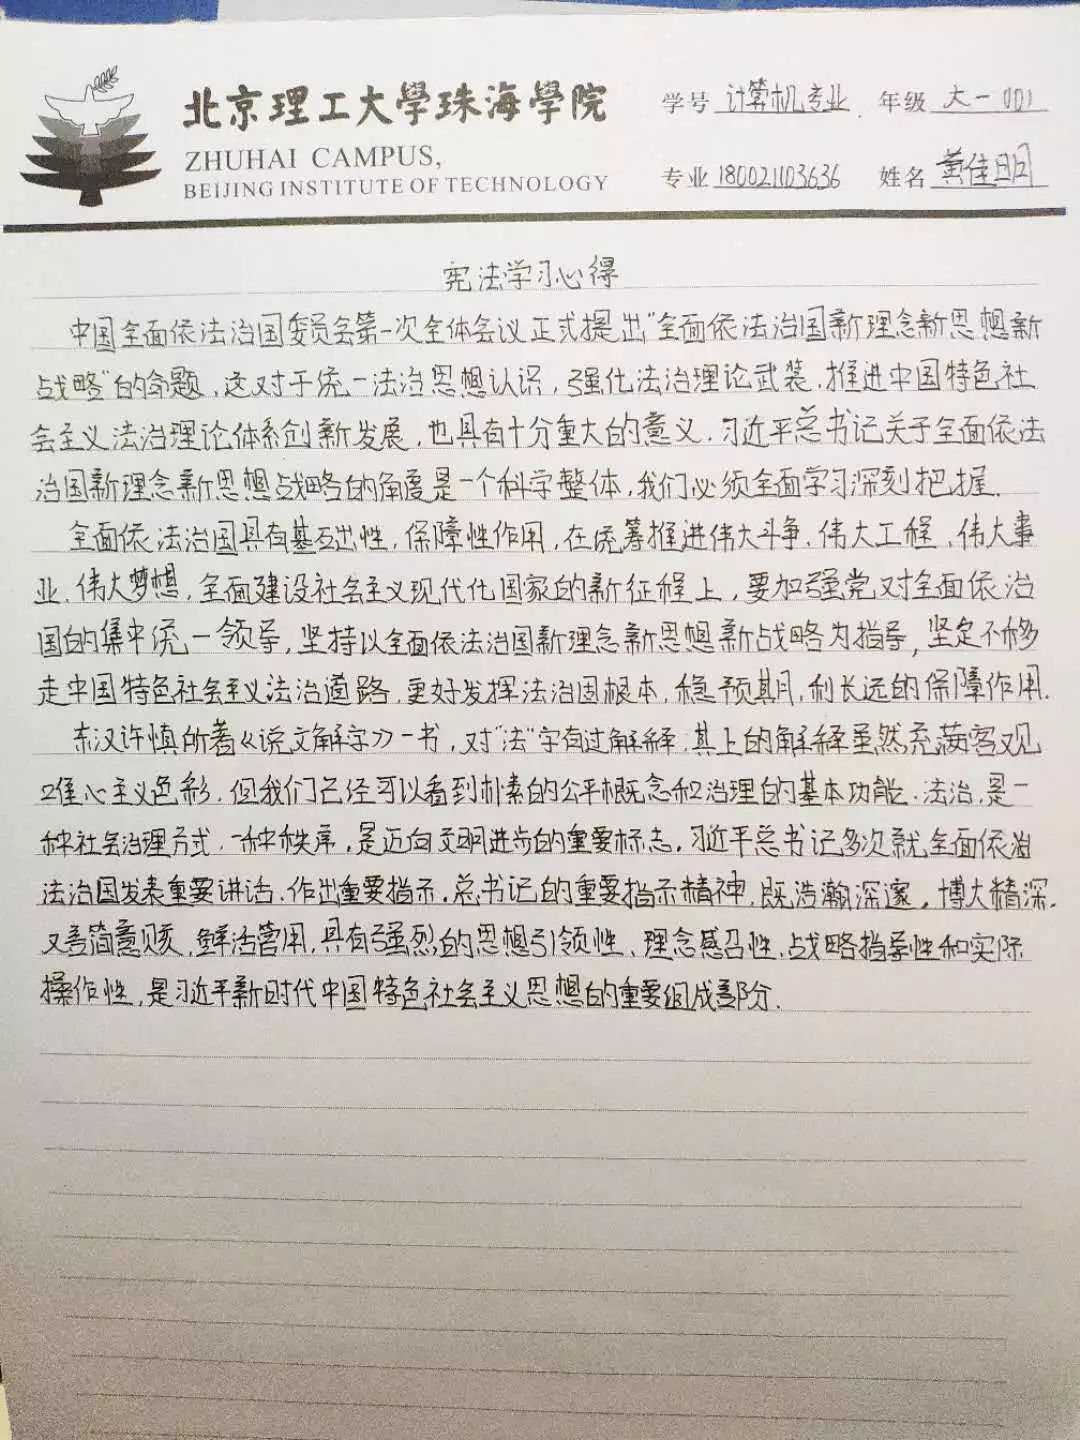 北京理工大學珠海學院
ZHUHAI CAMPUS,
BEIJING INSTITUTE OF TECHNOLOGY
学号 计算机专业 年级 大一 001
专业 180021103636 姓名 黄佳明
宪法学习心得
中国全面依法治国委员会第一次全体会议正式提出“全面依法治国新理念新思想新
战略”的命题,这对于统一法治思想认识,强化法治理论武装,推进中国特色社
会主义法治理论体系创新发展,也具有十分重大的意义.习近平总书记关于全面依法
治国新理念新思想战略的角度是一个科学整体,我们必须全面学习深刻把握.
全面依法治国具有基础性,保障性作用,在统筹推进伟大斗争、伟大工程、伟大事
业、伟大梦想,全面建设社会主义现代化国家的新征程上,要加强党对全面依治
国的集中统一领导,坚持以全面依法治国新理念新思想新战略为指导,坚定不移
走中国特色社会主义法治道路,更好发挥法治固根本,稳预期,利长远的保障作用.
东汉许慎所著《说文解字》一书,对“法”字有过解释,其上的解释虽然充满客观
唯心主义色彩,但我们已经可以看到朴素的公平概念和治理的基本功能.法治,是一
种社会治理方式,一种秩序,是迈向文明进步的重要标志,习近平总书记多次就全面依治
法治国发表重要讲话,作出重要指示.总书记的重要指示精神,既浩瀚深邃,博大精深,
又言简意赅,鲜活管用,具有强烈的思想引领性、理念感召性,战略指导性和实际
操作性,是习近平新时代中国特色社会主义思想的重要组成部分.